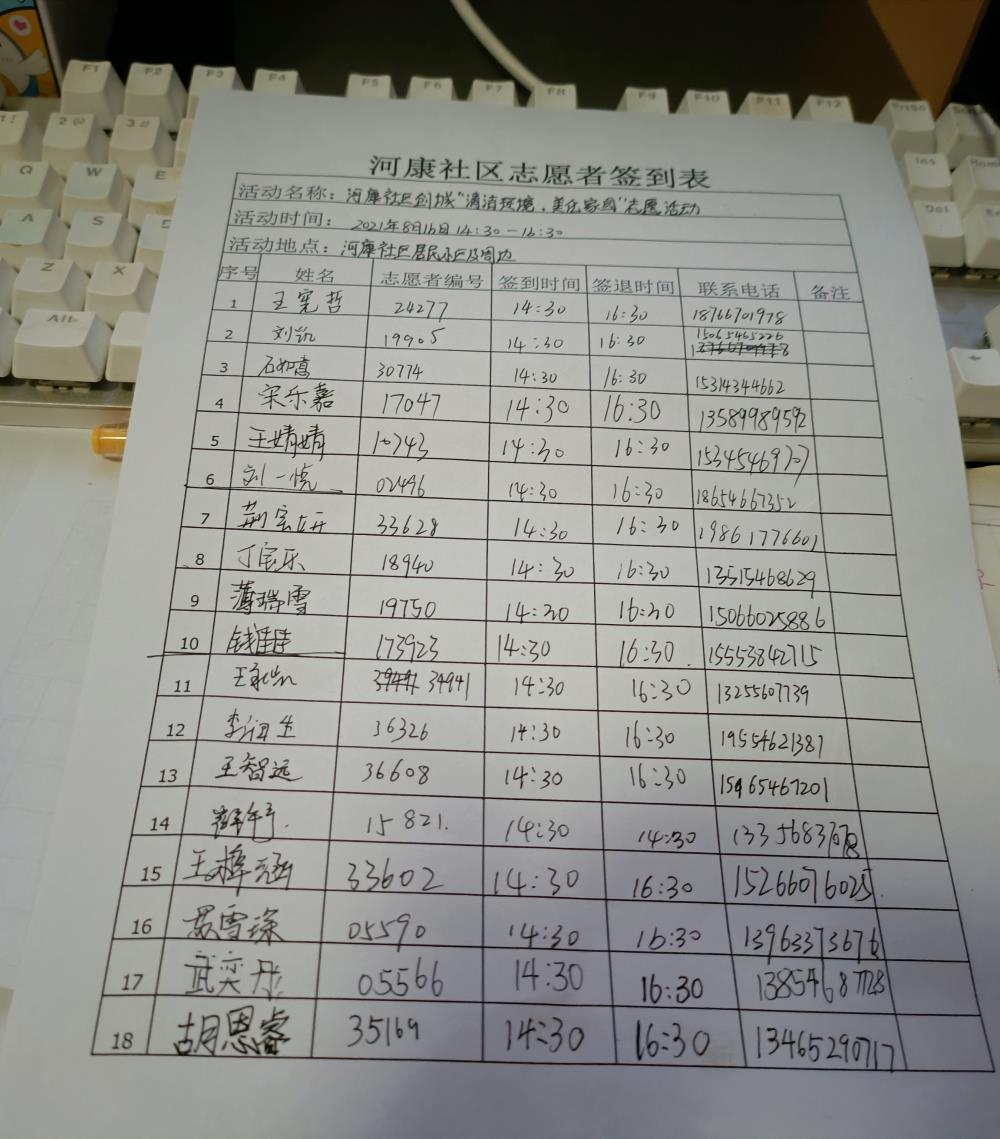 河康社区志愿者签到表
活动名称：河康社区创城"清洁环境，美化家园"志愿活动
活动时间：2021年8月16日14:30-16:30
活动地点：河康社区居民小区及周边
序号 姓名 志愿者编号 签到时间 签退时间 联系电话 备注
1 王宪哲 24277 14:30 16:30 18766701978
2 刘凯 19905 14:30 16:30 15065465226
3 石如意 30774 14:30 16:30 15314344662
4 宋乐嘉 17047 14:30 16:30 13589989592
5 王婧婧 10743 14:30 16:30 15345469707
6 刘一悦 02496 14:30 16:30 18654667352
7 荆宝妍 33628 14:30 16:30 19861776601
8 丁宝乐 18940 14:30 16:30 13515468629
9 薄瑞雪 19750 14:30 16:30 15066025886
10 钱佳佳 173923 14:30 16:30 15553842715
11 34941 14:30 16:30 13255607739
12 36326 14:30 16:30 19554621387
13 王智远 36608 14:30 16:30 15965467201
14 15821 14:30 14:30
15 王梓涵 33602 14:30 16:30 15266076025
16 雪琛 05590 14:30 16:30 13963373676
17 武奕彤 05566 14:30 16:30 13854687728
18 胡恩睿 35169 14:30 16:30 13465290717
F1 F2 F3 F4 F5 F6 F7 F8 F9 F10 F11 F12
Q W E
A S D
Z X
Alt
Ins
Del